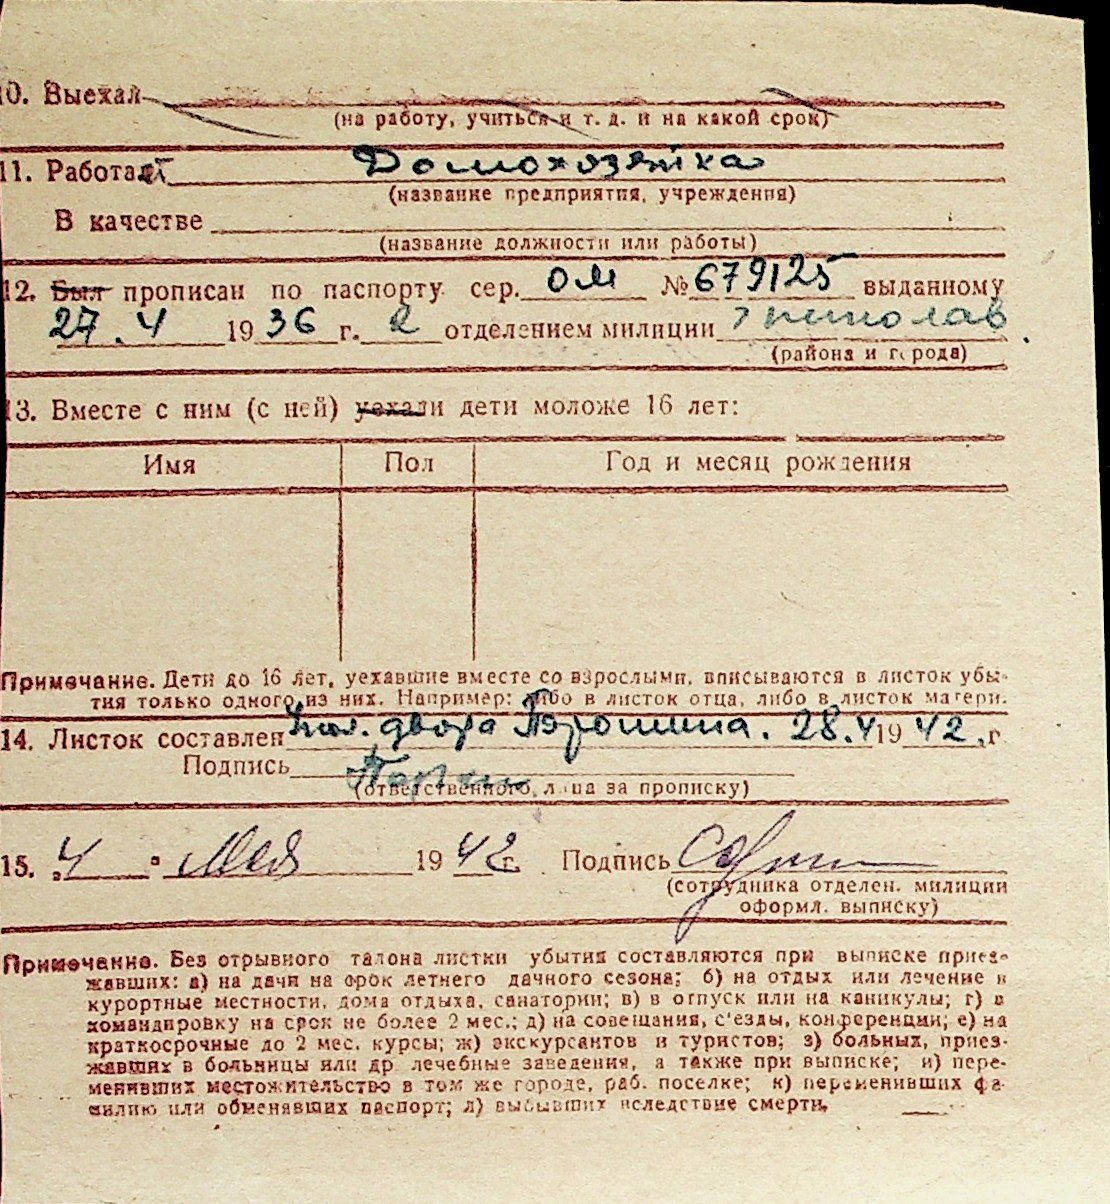 10. Выехал
(на работу, учиться и т. д. и на какой срок)
11. Работает Домохозяйка
(название предприятия, учреждения)
В качестве
(название должности или работы)
12. Был прописан по паспорту сер. ОМ № 679125 выданному
27.4 1936 г. 2 отделением милиции
(района и города)
13. Вместе с ним (с ней) уехали дети моложе 16 лет:
Имя Пол Год и месяц рождения
Примечание. Дети до 16 лет, уехавшие вместе со взрослыми, вписываются в листок убы-
тия только одного из них. Например: либо в листок отца, либо в листок матери.
14. Листок составлен двора 28.4 1942 г
Подпись
(ответственного лица за прописку)
15. „4" Мая 1942 г. Подпись
(сотрудника отделен. милиции
оформл. выписку)
Примечание. Без отрывного талона листки убытия составляются при выписке приез-
жавших: а) на дачи на срок летнего дачного сезона; б) на отдых или лечение в
курортные местности, дома отдыха, санатории; в) в отпуск или на каникулы; г) в
командировку на срок не более 2 мес.; д) на совещания, с'езды, конференции; е) на
краткосрочные до 2 мес. курсы; ж) экскурсантов и туристов; з) больных, приез-
жавших в больницы или др лечебные заведения, а также при выписке; и) пере-
менивших местожительство в том же городе, раб. поселке; к) переменивших фа-
милию или обменявших паспорт; л) выбывших вследствие смерти.